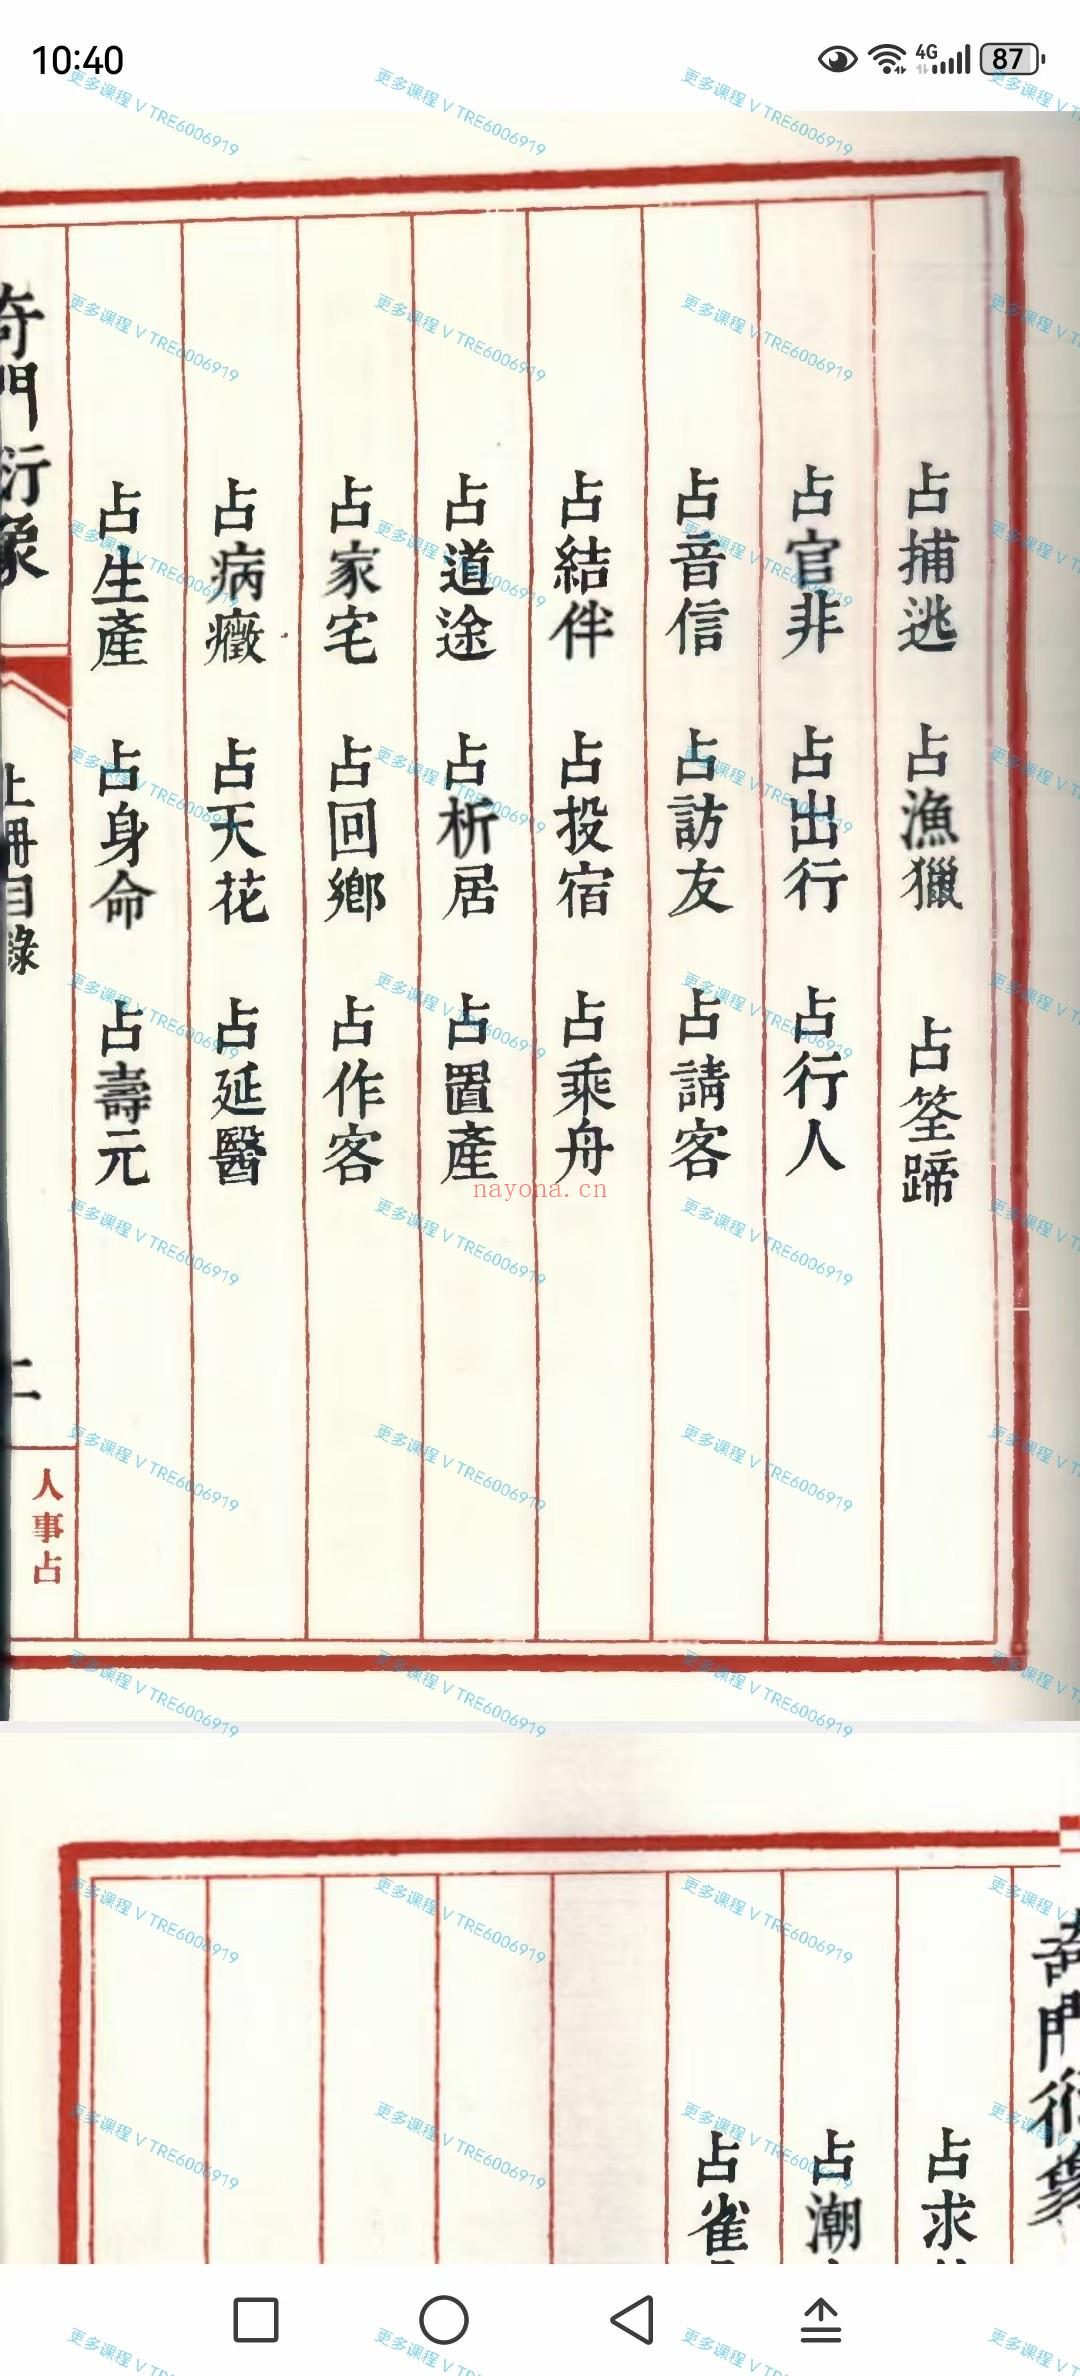 10:40
4G
87
占捕逃 占漁獵 占筌蹄
占官非 占出行 占行人
占音信 占訪友 占請客
占結伴 占投宿 占乘舟
占道途 占析居 占置產
占家宅 占回鄉 占作客
占病癥 占天花 占延醫
占生產 占身命 占壽元
奇門衍象
上冊目錄
二
人事占
nayona.cn
奇門衍象
占求
占潮
占雀
更多课程 V TRE6006919